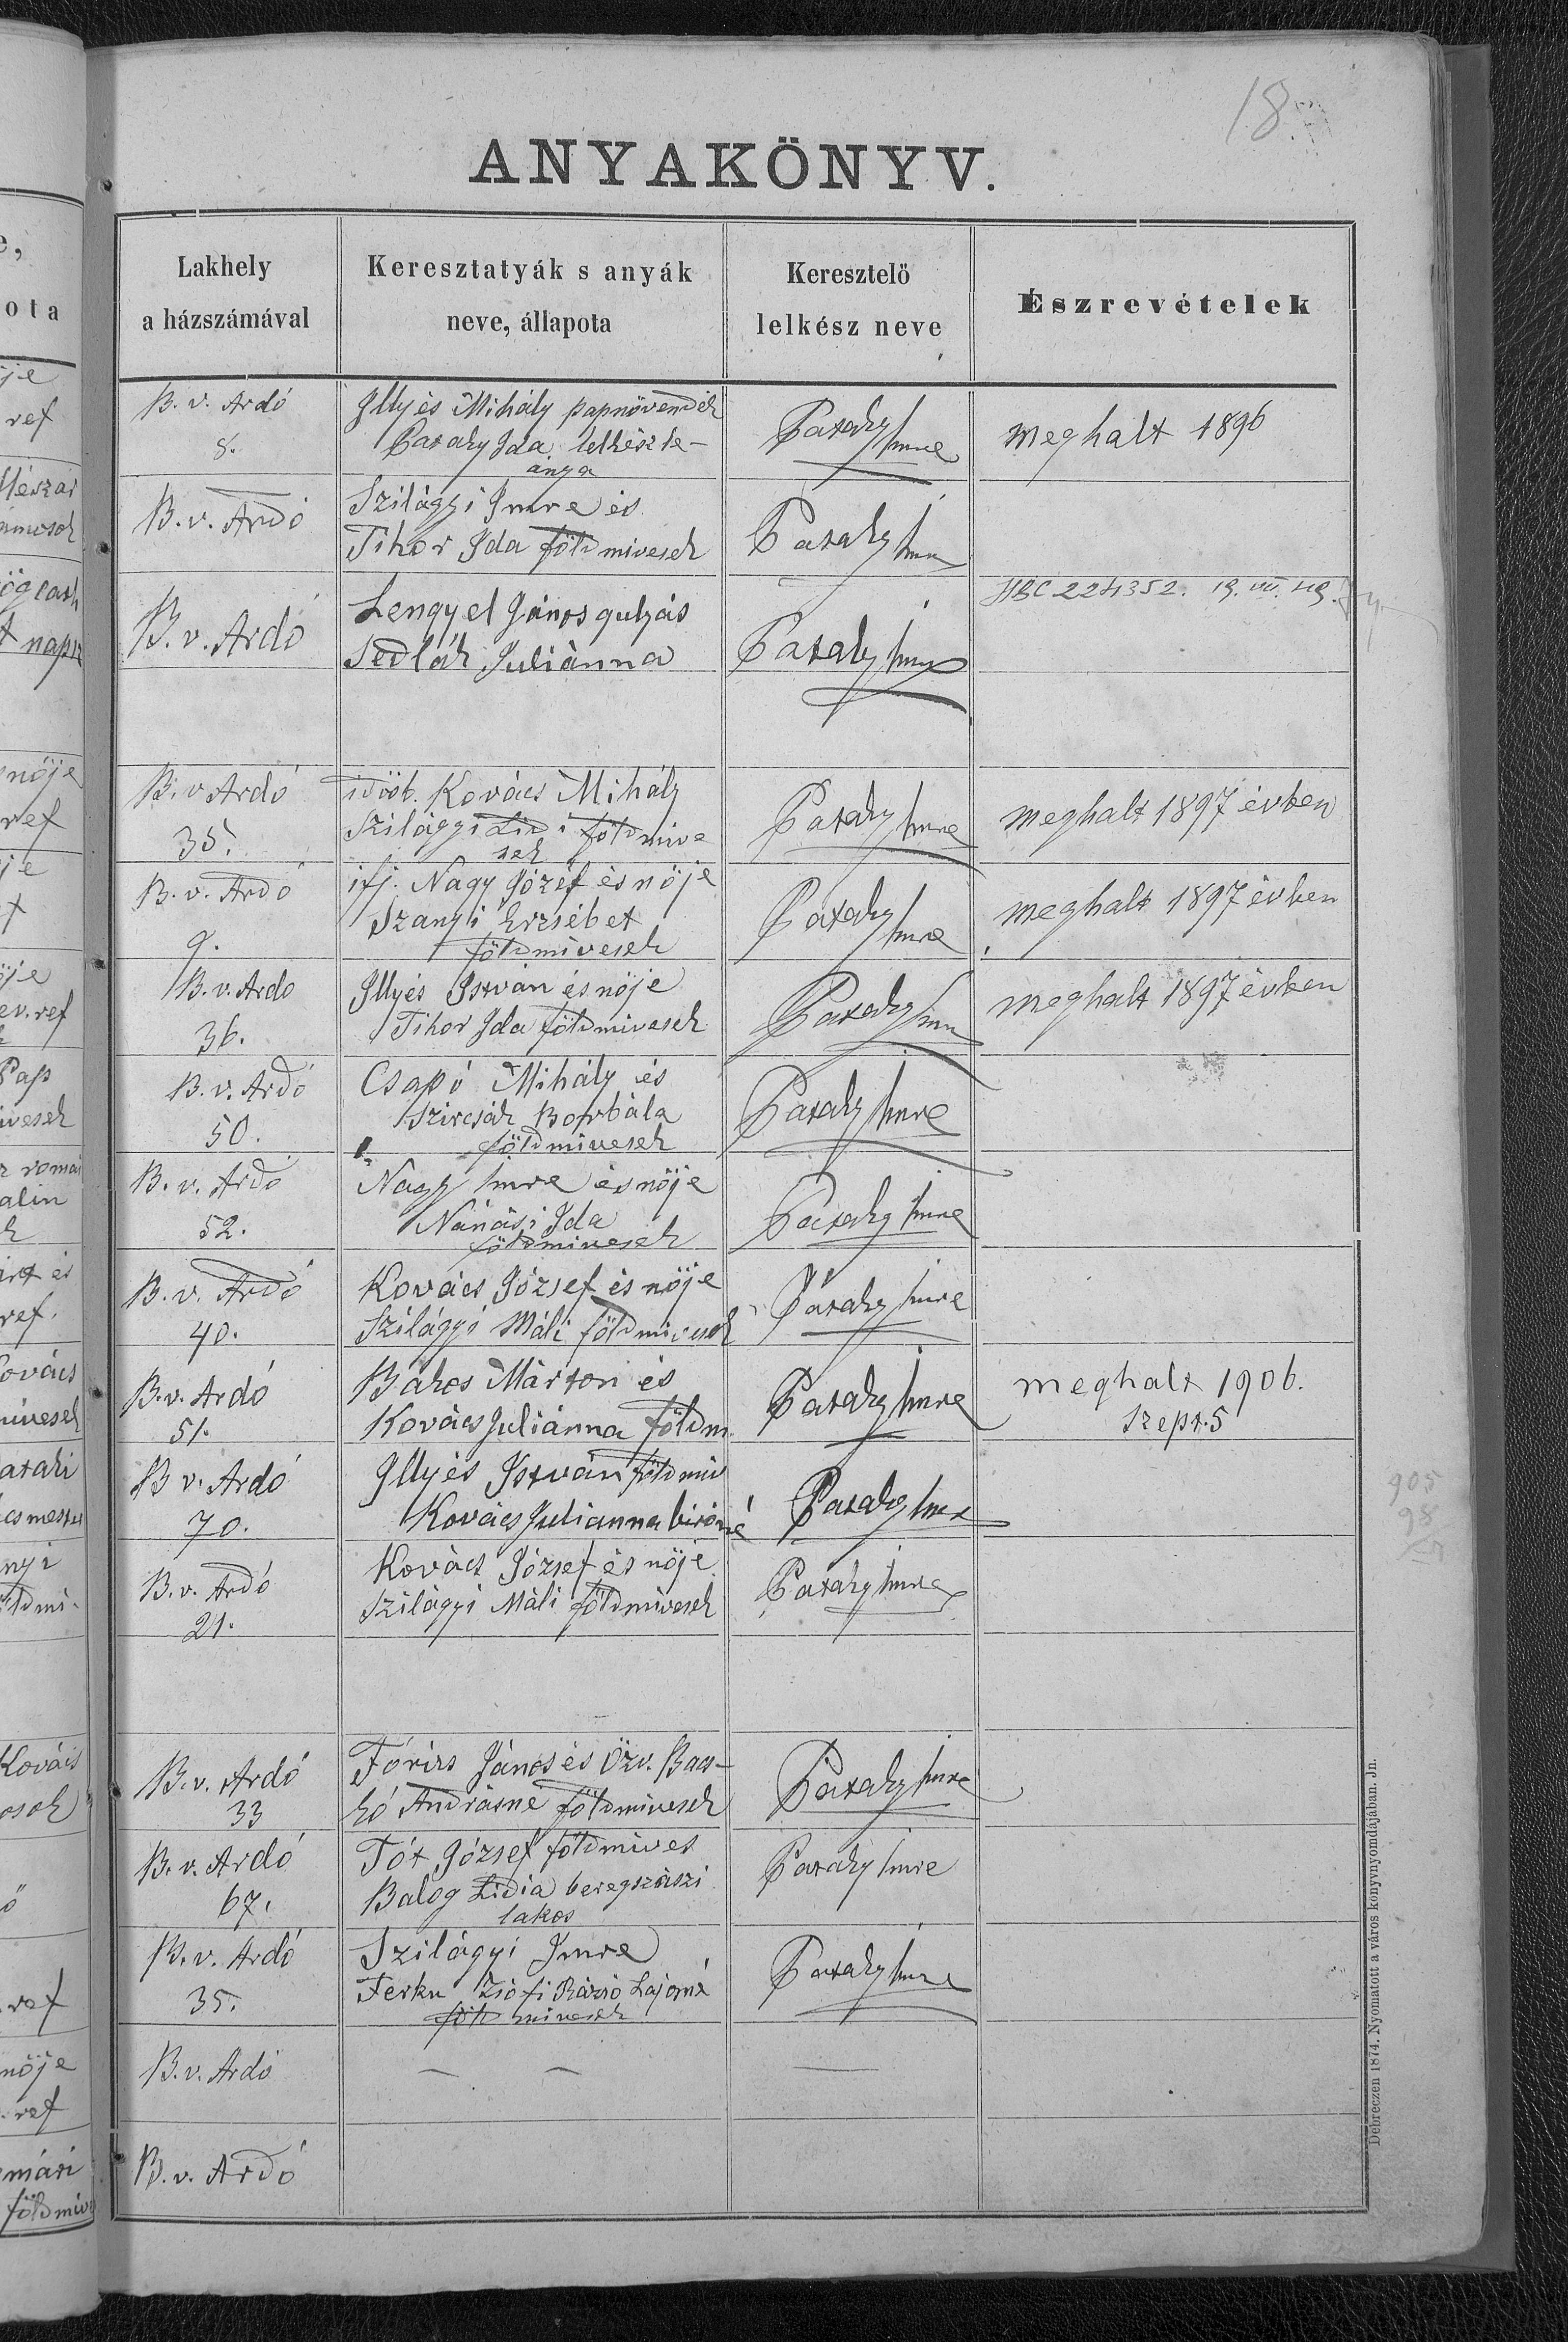 18
ANYAKÖNYV.
Lakhely
a házszámával
Keresztatyák s anyák
neve, állapota
Keresztelő
lelkész neve
Észrevételek
B. v. Ardó
8.
Illyés Mihály papnövendék
Pataky Ida lelkész le-
ánya
Pataky Imre
meghalt 1896
B. v. Ardó
Szilágyi Imre és
Tihor Ida földmivesek
Pataky Imre
B. v. Ardó
Lengyel János gulyás
Sedlák Juliánna
Pataky Imre
224352. 19. VII. 49.
B. v Ardó
35.
időb. Kovács Mihály
Szilágyi Lidi földmive
sek
Pataky Imre
meghalt 1897 évben
B. v. Ardó
9.
ifj. Nagy Józéf és nöje
Szanyi Erzsébet
földmivesek
Pataky Imre
meghalt 1897 évben
B. v. Ardo
36.
Illyés István és nöje
Tihor Ida földmivesek
Pataky Imre
meghalt 1897 évben
B. v. Ardó
50.
Csapó Mihály és
Szircsák Borbála
földmivesek
Pataky Imre
B. v. Ardó
52.
Nagy Imre és nöje
Nánási Ida
földmivesek
Pataky Imre
B. v. Ardó
40.
Kovács József és nöje
Szilágyi Máli földmivesek
Pataky Imre
B. v. Ardó
51.
Bákos Márton és
Kovács Juliánna földm.
Pataky Imre
meghalt 1906.
Szept. 5
B v. Ardó
70.
Illyés István földmiv
Kovács Julianna biróné
Pataky Imre
B. v. Ardó
21.
Kovács József és nöje
Szilágyi Máli földmivesek
Pataky Imre
905
98
B. v. Ardó
33
Fórizs János és Özv. Bacs-
kó Andrásné földmivesek
Pataky Imre
B. v. Ardó
67.
Tót József földmives
Balog Lidia beregszászi
lakos
Pataky Imre
B. v. Ardó
35.
Szilágyi Imre
Ferku Zsófi Lajosné
földmivesek
Pataky Imre
B. v. Ardó
— — —
B. v. Ardó
Debreczen 1874. Nyomatott a város könyvnyomdájában. Jn.